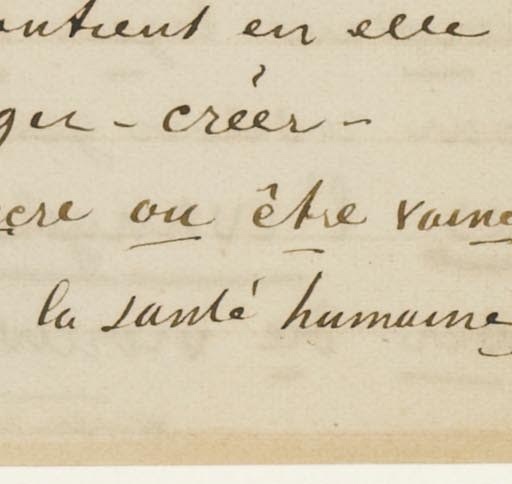 ontient en elle
- créer -
cre ou être vainc
la santé humaine